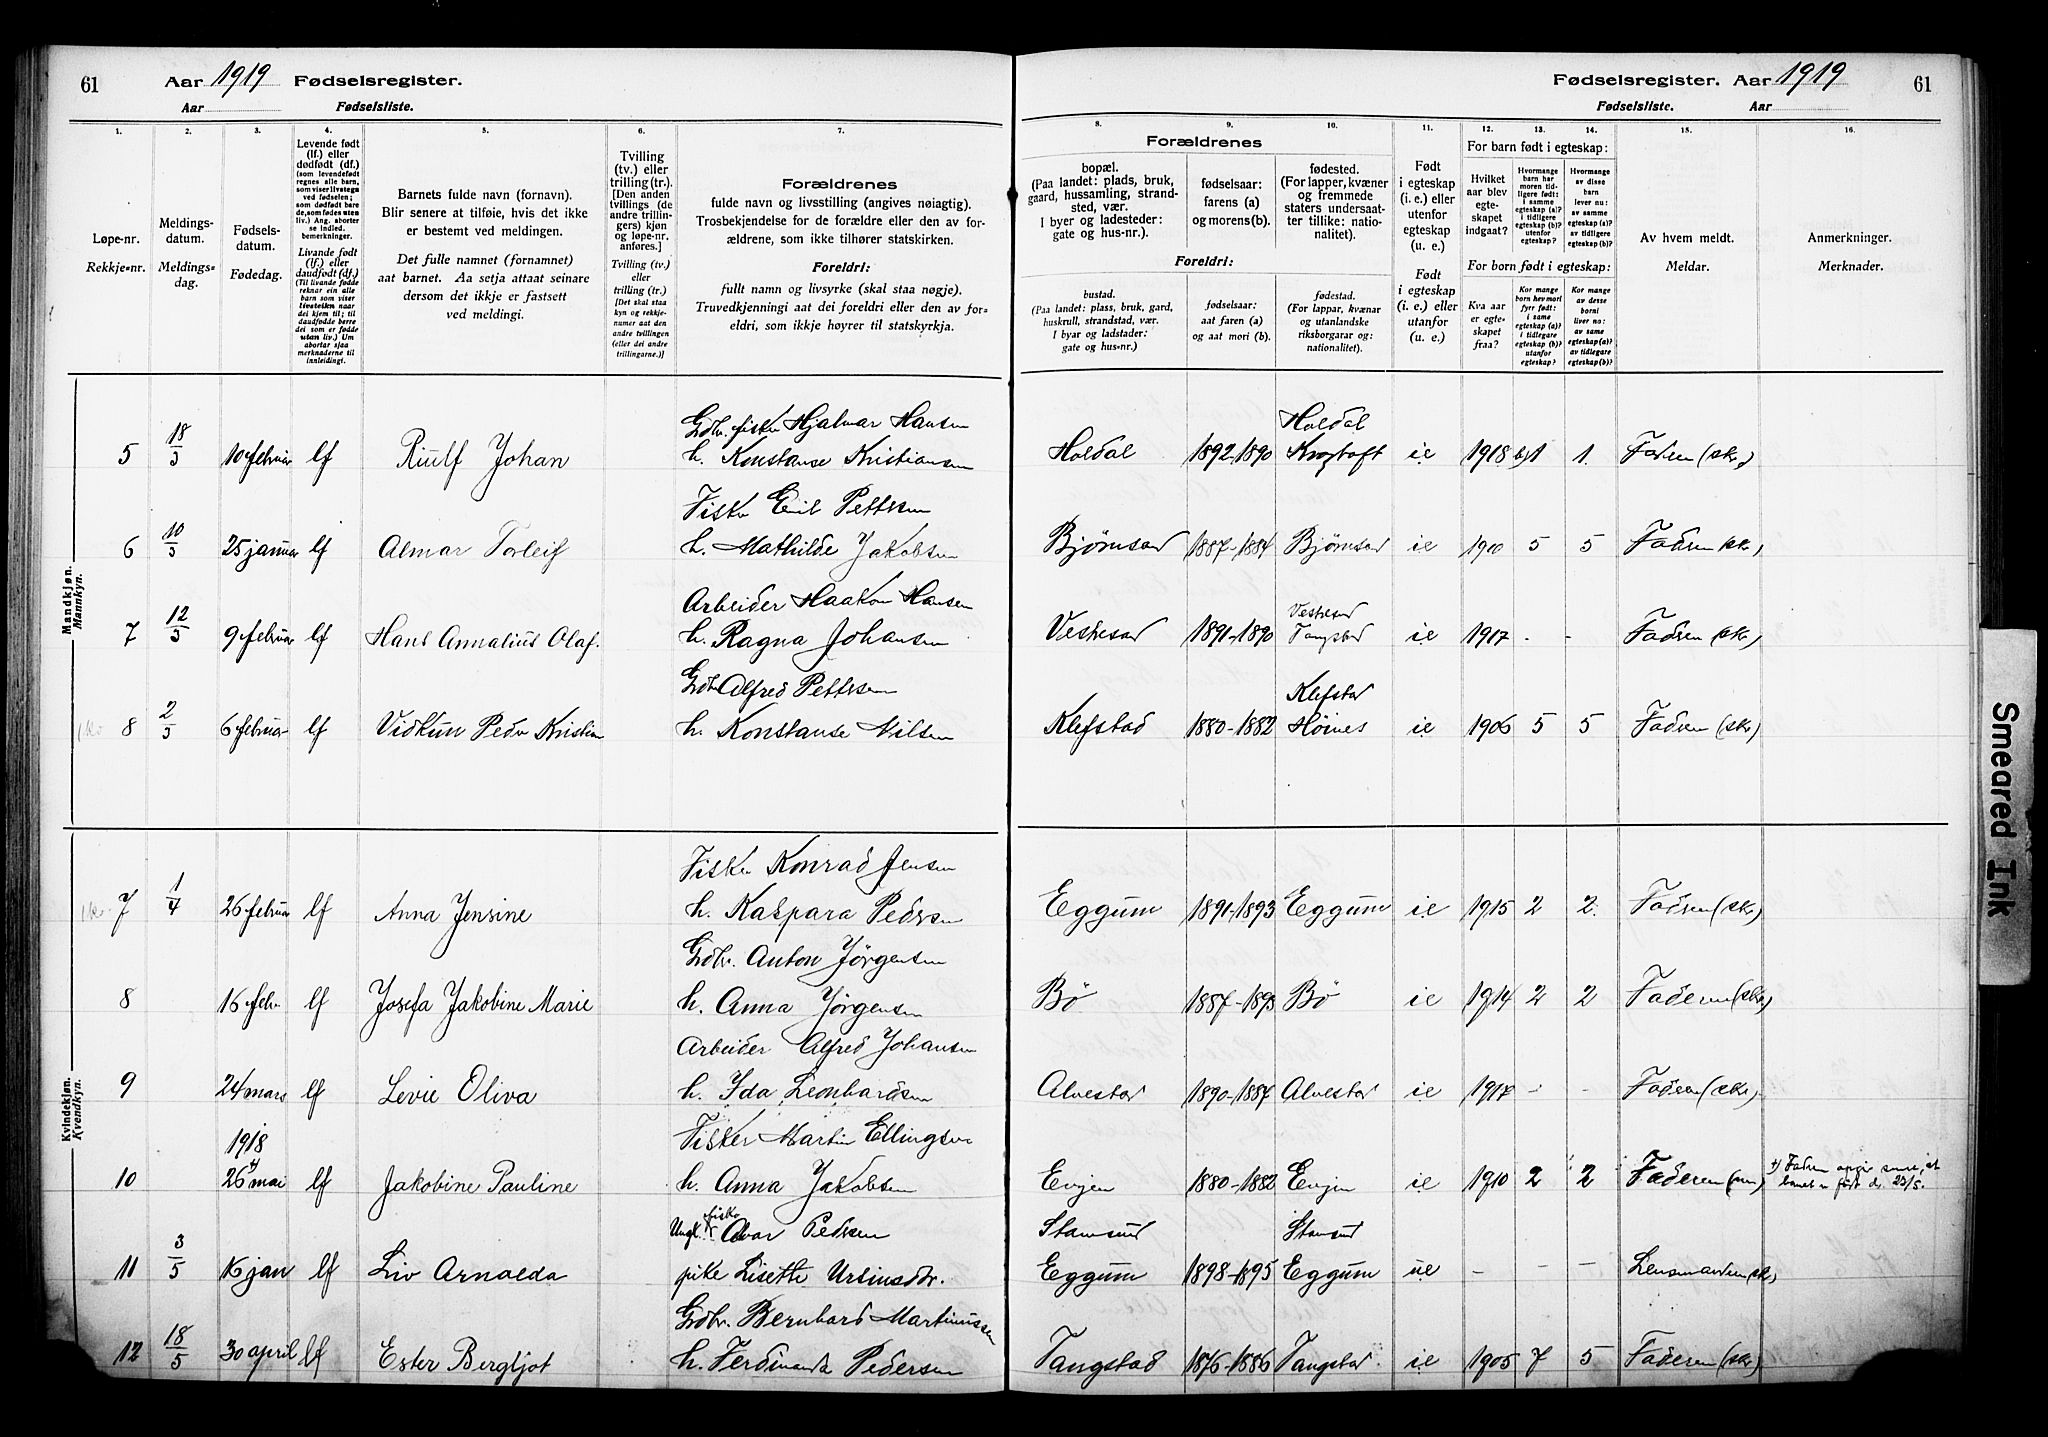 61 Aar 1919 Fødselsregister.
Aar Fødselsliste.
Fødselsregister. Aar 1919 61
Fødselsliste. Aar
1. 2. 3. 4. 5. 6. 7. 8. 9. 10. 11. 12. 13. 14. 15. 16.
Løpe-nr.
Rekkje-nr.
Meldings-
datum.
Meldings-
dag.
Fødsels-
datum.
Fødedag.
Levende født
(lf.) eller
dødfødt (df.)
(som levendefødt
regnes alle barn,
som viser livstegn
ved fødselen;
som dødfødt bare
de, som fødes uten
liv.) Ang. aborter
se indled.
bemerkninger.
Livande født
(lf.) eller
daudfødt (df.)
(Til livande fødde
reknar ein alle
barn som viser
livsteikn naar
dei kjem til; til
daudfødde berre
dei som er fødde
utan liv.) Um
abortar sjaa
merknaderne til
innleidingi.
Barnets fulde navn (fornavn).
Blir senere at tilføie, hvis det ikke
er bestemt ved meldingen.
Det fulle namnet (fornamnet)
aat barnet. Aa setja attaat seinare
dersom det ikkje er fastsett
ved meldingi.
Tvilling
(tv.) eller
trilling (tr.).
[Den anden
tvillings (de
andre trillin-
gers) kjøn
og løpe-nr.
anføres.]
Tvilling (tv.)
eller
trilling (tr.)
[Det skal staa
kyn og rekkje-
numer aat den
andre tvillingen
(eller dei andre
trillingarne.)]
Forældrenes
fulde navn og livsstilling (angives nøiagtig).
Trosbekjendelse for de forældre eller den av for-
ældrene, som ikke tilhører statskirken.
Foreldri:
fullt namn og livsyrke (skal staa nøgje).
Truvedkjenningi aat dei foreldri eller den av for-
eldri, som ikkje høyrer til statskyrkja.
Forældrenes
bopæl.
(Paa landet: plads, bruk,
gaard, hussamling, strand-
sted, vær.
I byer og ladesteder:
gate og hus-nr.).
fødselsaar:
farens (a)
og morens (b).
fødested.
(For lapper, kvæner
og fremmede
staters undersaat-
ter tillike: natio-
nalitet).
Foreldri:
bustad.
(Paa landet: plass, bruk, gard,
huskrull, strandstad, vær.
I byar og ladstader:
gate og hus-nr.)
fødselsaar:
aat faren (a)
og aat mori (b).
fødestad.
(For lappar, kvænar
og utanlandske
riksborgarar og:
nationalitet).
Født
i egteskap
(i. e.) eller
utenfor
egteskap
(u. e.)
Født
i egteskap
(i. e.) eller
utanfor
(u. e.)
For barn født i egteskap:
Hvilket
aar blev
egte-
skapet
indgaat?
Hvormange
barn har
moren tid-
ligere født:
i samme
egteskap (a)?
i tidligere
egteskap (b)?
utenfor
egteskap?
Hvormange
av disse
barn
lever nu:
av samme
egteskap (a)?
av tidligere
egteskap (b)?
For born født i egteskap:
Kva aar
er egte-
skapet
fraa?
Kor mange
born hev mori
fyrr født:
i same
egteskap (a)?
i tidlegare
egteskap (b)?
utanfor
egteskap?
Kor mange
av desse
borni
liver no:
av same
egteskap (a)?
av tidlegare
egteskap (b)?
Av hvem meldt.
Meldar.
Anmerkninger.
Merknader.
Mandkjøn.
Mannkyn.
Gdbr. fisker Hjalmar Hansen Holdal
5 18/3 10 februar lf Riulf Johan h. Konstanse Kristiansen Holdal 1892-1890 Krogtoft i.e 1918 b)1 1. Faderen (skr.)
Fisker Emil Pettersen
6 10/3 25 januar lf Almar Torleif h. Mathilde Jakobsen Bjørnsad 1887-1884 Bjørnsad i.e 1900 5 5 Faderen (skr.)
Arbeider Haakon Hansen Vestresad
7 12/3 9 februar lf Hans Annalius Olaf. h. Ragna Johansen Vestresad 1891-1890 Tangstad i.e 1917 - - Faderen (skr.)
Gdbr Alfred Pettersen Klefstad
8 2/3 6 februar lf Vidkun Peder Kristian h. Konstanse Nilsen Klefstad 1880-1882 Høines i.e 1906 5 5 Faderen (skr.)
Kvindekjøn.
Kvendkyn.
Fisker Konrad Jensen
7 1/4 26 februar lf Anna Jensine h. Kaspara Pedersen Eggum 1891-1893 Eggum i.e 1915 2 2. Faderen (skr.)
Gdbr. Anton Jörgensen
8 16 febr. lf Josefa Jakobine Marie h. Anna Jörgensen Bö 1887-1893 Bö i.e 1914 2 2 Faderen (skr.)
Arbeider Alfred Johansen
9 24 mars lf Levie Oliva h. Ida Leonhardsen Alvestad 1890-1887 Alvestad i.e 1917 - - Faderen (skr.)
1918 Fisker Martin Ellingsen
10 26 +) mai lf Jakobine Pauline h. Anna Jakobsen Evjen 1880-1882 Evjen i.e 1910 2 2 Faderen (mu.) +) Faderen opgir senere, at
barnet er født d. 23/5.
Ungk. fisker Alvar Pedersen Stamsund Stamsund
11 3/5 16 jan lf Liv Arnalda pike Lisette Ursinsdtr. Eggum 1898-1895 Eggum u.e - - - Lensmanden (skr.)
Gdbr Bernhard Martinussen
12 18/5 30 april lf Ester Bergljot h. Ferdinanda Pedersen Tangstad 1876-1886 Tangstad. i.e 1905 7 5 Faderen (skr.)
Smeared Ink